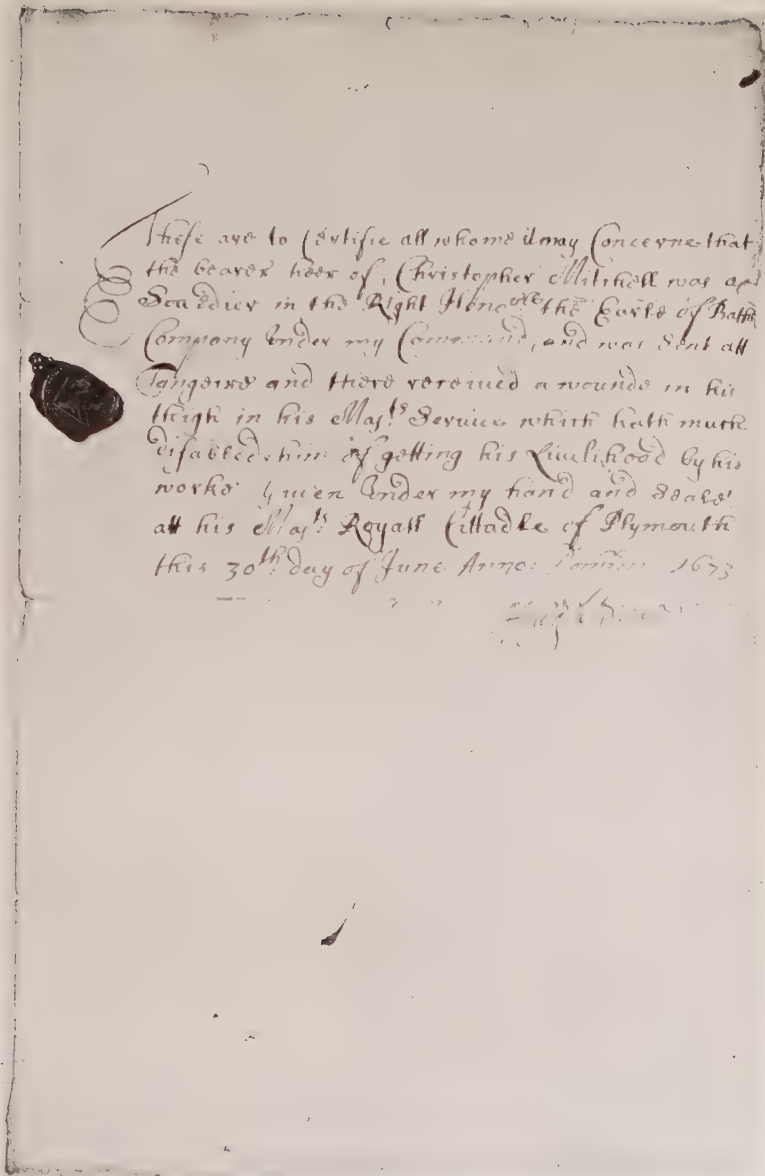 These are to Certifie all whome it may Concerne that
the bearer heer of, Christopher Mitchell was a
Souldier in the Right Hono:ble the Earle of Bathe
Company Under my Command, and was Sent att
Tangeire and there received a wounde in his
theigh in his Maj:ts Service which hath much
disabled him of getting his Livelihood by his
worke Given Under my hand and Seale
att his Maj:ts Royall Cittadle of Plymouth
this 30th: day of June Anno: Domini 1673